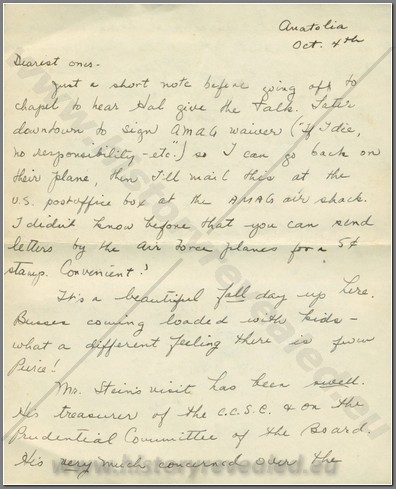 Anatolia
Oct. 4th
Dearest ones-
Just a short note before going off to
chapel to hear Hal give the talk. Later
downtown to sign AMAG waiver ("If I die,
no responsibility - etc") so I can go back on
their plane, then I'll mail this at the
U.S. postoffice box at the AMAG air shack.
I didn't know before that you can send
letters by the Air Force planes for a 5¢
stamp. Convenient!
It's a beautiful fall day up here.
Busses coming loaded with kids-
what a different feeling there is from
Pierce!
Mr. Stein's visit has been swell.
His treasurer of the C.C.S.C. & on the
Prudential Committee of the Board.
His very much concerned over the
www.historyrevealed.eu
www.historyrevealed.eu